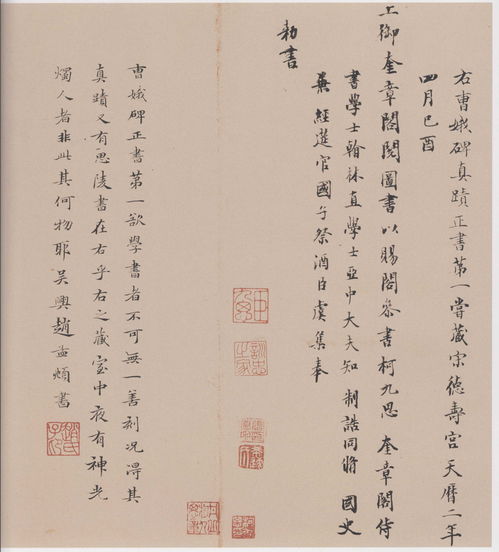 右曹娥碑真蹟正書第一嘗藏宋德壽宮天曆二年
四月己酉
上御奎章閣閱圖書以賜閣參書柯九思 奎章閣侍
書學士翰林直學士亞中大夫知 制誥同脩 國史
兼經筵官國子祭酒臣虞集奉
勑書
曹娥碑正書第一欲學書者不可無一善刻况得其
真蹟又有思陵書在右乎右之藏室中夜有神光
燭人者非此其何物耶吳興趙孟頫書
趙氏子昂